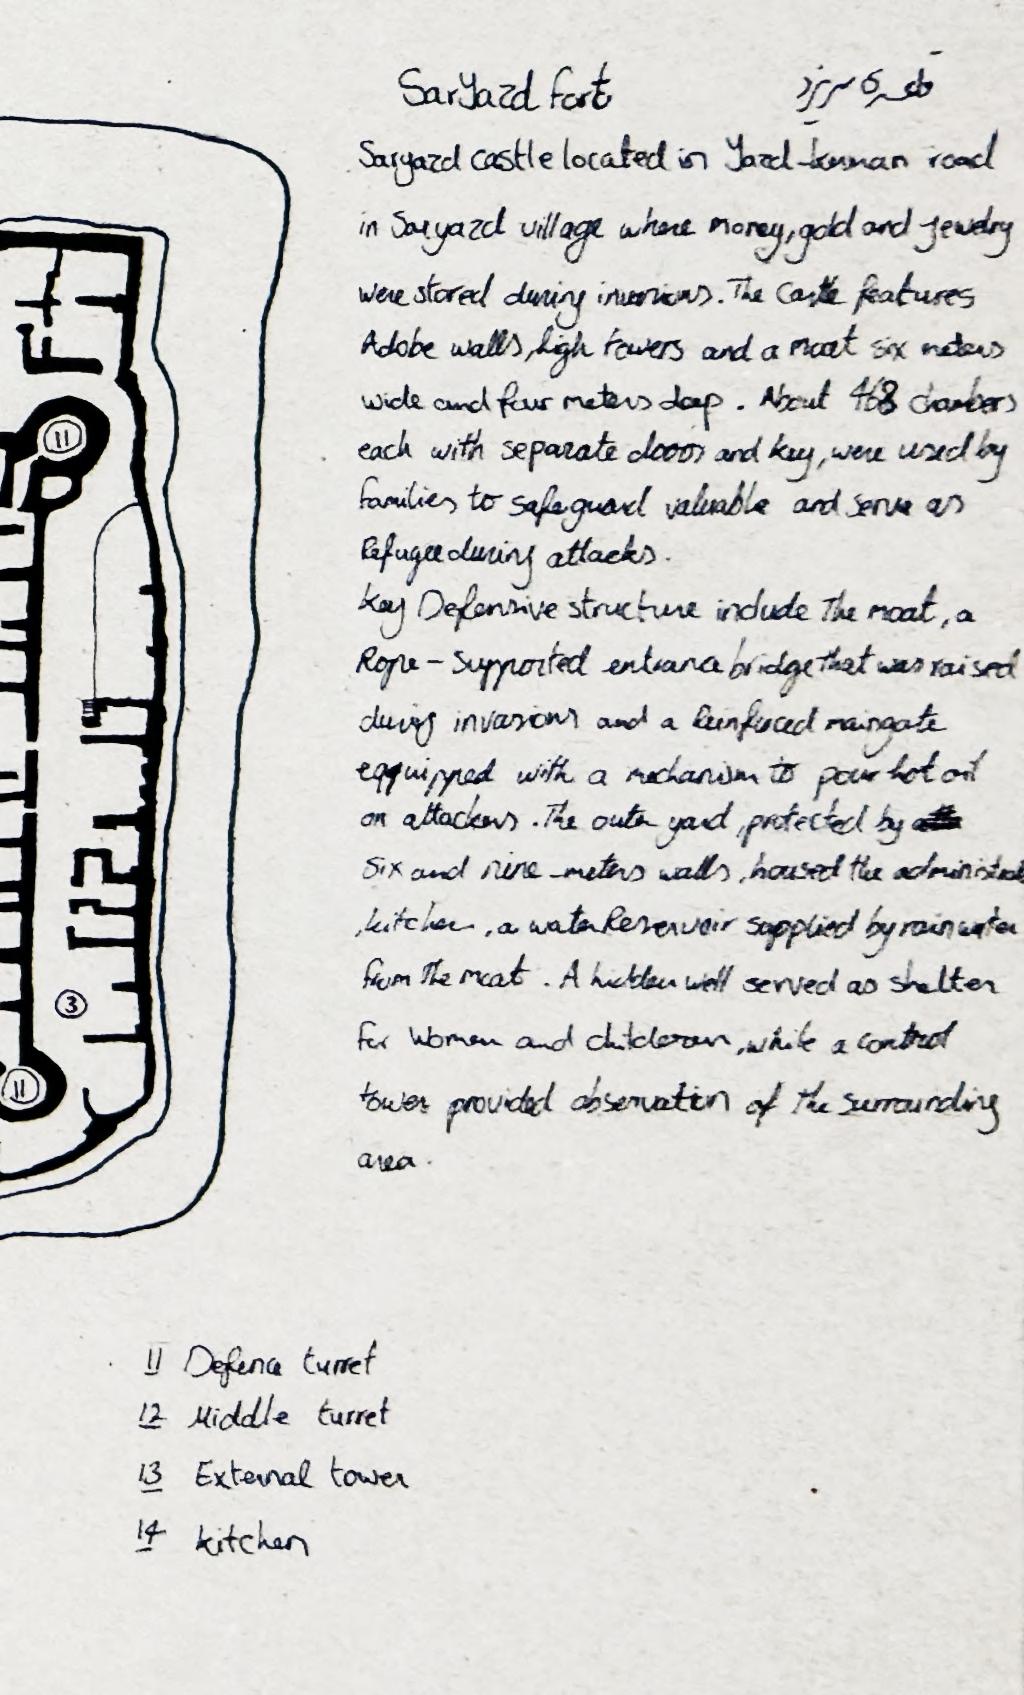 SarYazd fort
قلعه سریزد
Saryazd castle located in Yazd-kerman road
in Saryazd village where money, gold and jewelry
were stored during invasions. The Castle features
Adobe walls, high towers and a moat six meters
wide and four meters deep. About 468 chambers
each with separate dooor and key, were used by
families to safeguard valuable and serve as
Refugee during attacks.
Key Defensive structure include The moat, a
Rope-supported entrance bridge that was raised
during invasions and a Reinforced maingate
eqquipped with a mechanism to pour hot oil
on attackers. The outer yard, protected by
six and nine-meters walls, housed the
, kitchen, a water Reservoir supplied by rain water
from The moat. A hidden well served as shelter
for Women and childeran, while a control
tower provided observation of the surrounding
area.
11
11
3
11 Defence turret
12 Middle turret
13 External tower
14 kitchen